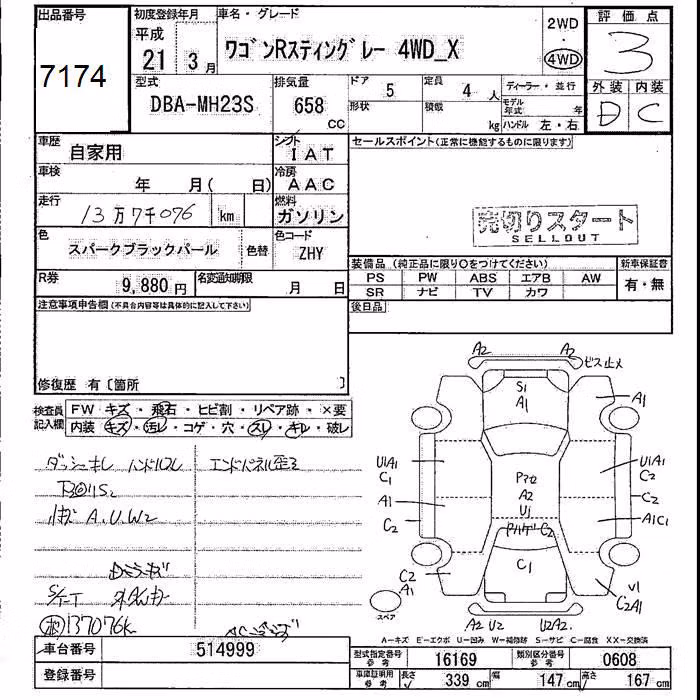 出品番号
7174
初度登録年月
平成
21年 3月
車名・グレード
ワゴンRスティングレー 4WD_X
2WD
・
4WD
評価点
3
外装 内装
D C
型式
DBA-MH23S
排気量
658
cc
ドア 5
定員 4 人
形状
積載 kg
ディーラー・並行
モデル年式 年
ハンドル 左・右
車歴
自家用
シフト
IAT
セールスポイント(正常に機能するものに限ります)
車検
年 月( 日)
冷房
AAC
走行
13万7千076 km
燃料
ガソリン
売切りスタート
SELLOUT
色
スパークブラックパール
色替
色コード
ZHY
装備品 (純正品に限り○をつけてください)
新車保証書
PS PW ABS エアB AW
SR ナビ TV カワ
有・無
R券
9,880円
名変通知期限
月 日
後日品
注意事項申告欄(不具合内容等は具体的に記入して下さい)
修復歴 有〔箇所 〕
検査員記入欄
FW キズ・飛石・ヒビ割・リペア跡・×要
内装 キズ・汚レ・コゲ・穴・スリ・キレ・破レ
ダッシュキレ ハンドルスレ
エンドパネル歪ミ
小キズ A.U.W2
Dミラーキズ
137076k
A2 A2 ビス止メ
S1
A1
A1
U1A1
C1
A1
C2
U1A1
C2
C2
A1C1
A2
U1
C2
C1
C2
A1
U1
C2A1
スペア
A2 U2 U2A2
A-キズ E-エクボ U-凹み W-補修跡 S-サビ C-腐食 XX-交換済
車台番号
514999
登録番号
型式指定番号
参考
16169
類別区分番号
参考
0608
車庫証明用
参考
長さ 339 cm
幅 147 cm
高さ 167 cm